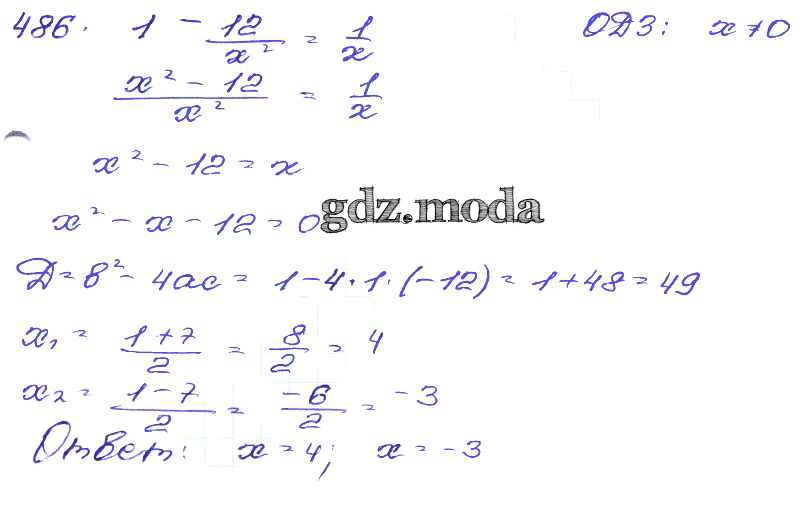 486. 1 - 12/x² = 1/x ОДЗ: x ≠ 0
x² - 12/x² = 1/x
x² - 12 = x
x² - x - 12 = 0
gdz.moda
Д = b² - 4ac = 1 - 4 · 1 · (-12) = 1 + 48 = 49
x₁ = 1 + 7/2 = 8/2 = 4
x₂ = 1 - 7/2 = -6/2 = -3
Ответ: x = 4; x = -3